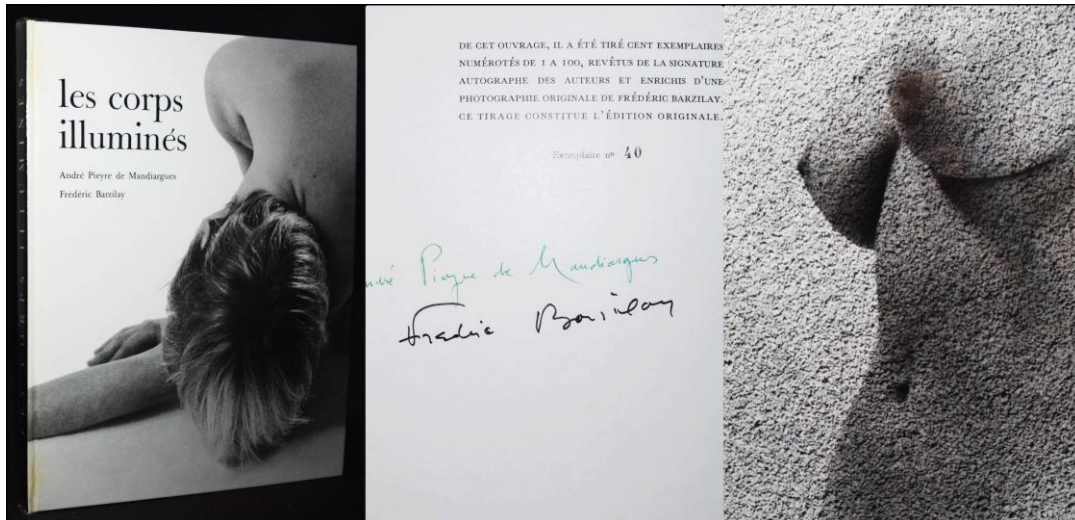 les corps
illuminés
André Pieyre de Mandiargues
Frédéric Barzilay
LES CORPS ILLUMINÉS
DE CET OUVRAGE, IL A ÉTÉ TIRÉ CENT EXEMPLAIRES
NUMÉROTÉS DE 1 A 100, REVÊTUS DE LA SIGNATURE
AUTOGRAPHE DES AUTEURS ET ENRICHIS D'UNE
PHOTOGRAPHIE ORIGINALE DE FRÉDÉRIC BARZILAY.
CE TIRAGE CONSTITUE L'ÉDITION ORIGINALE.
Exemplaire nº 40
ndré Pieyre de Mandiargues
Frédéric Barzilay